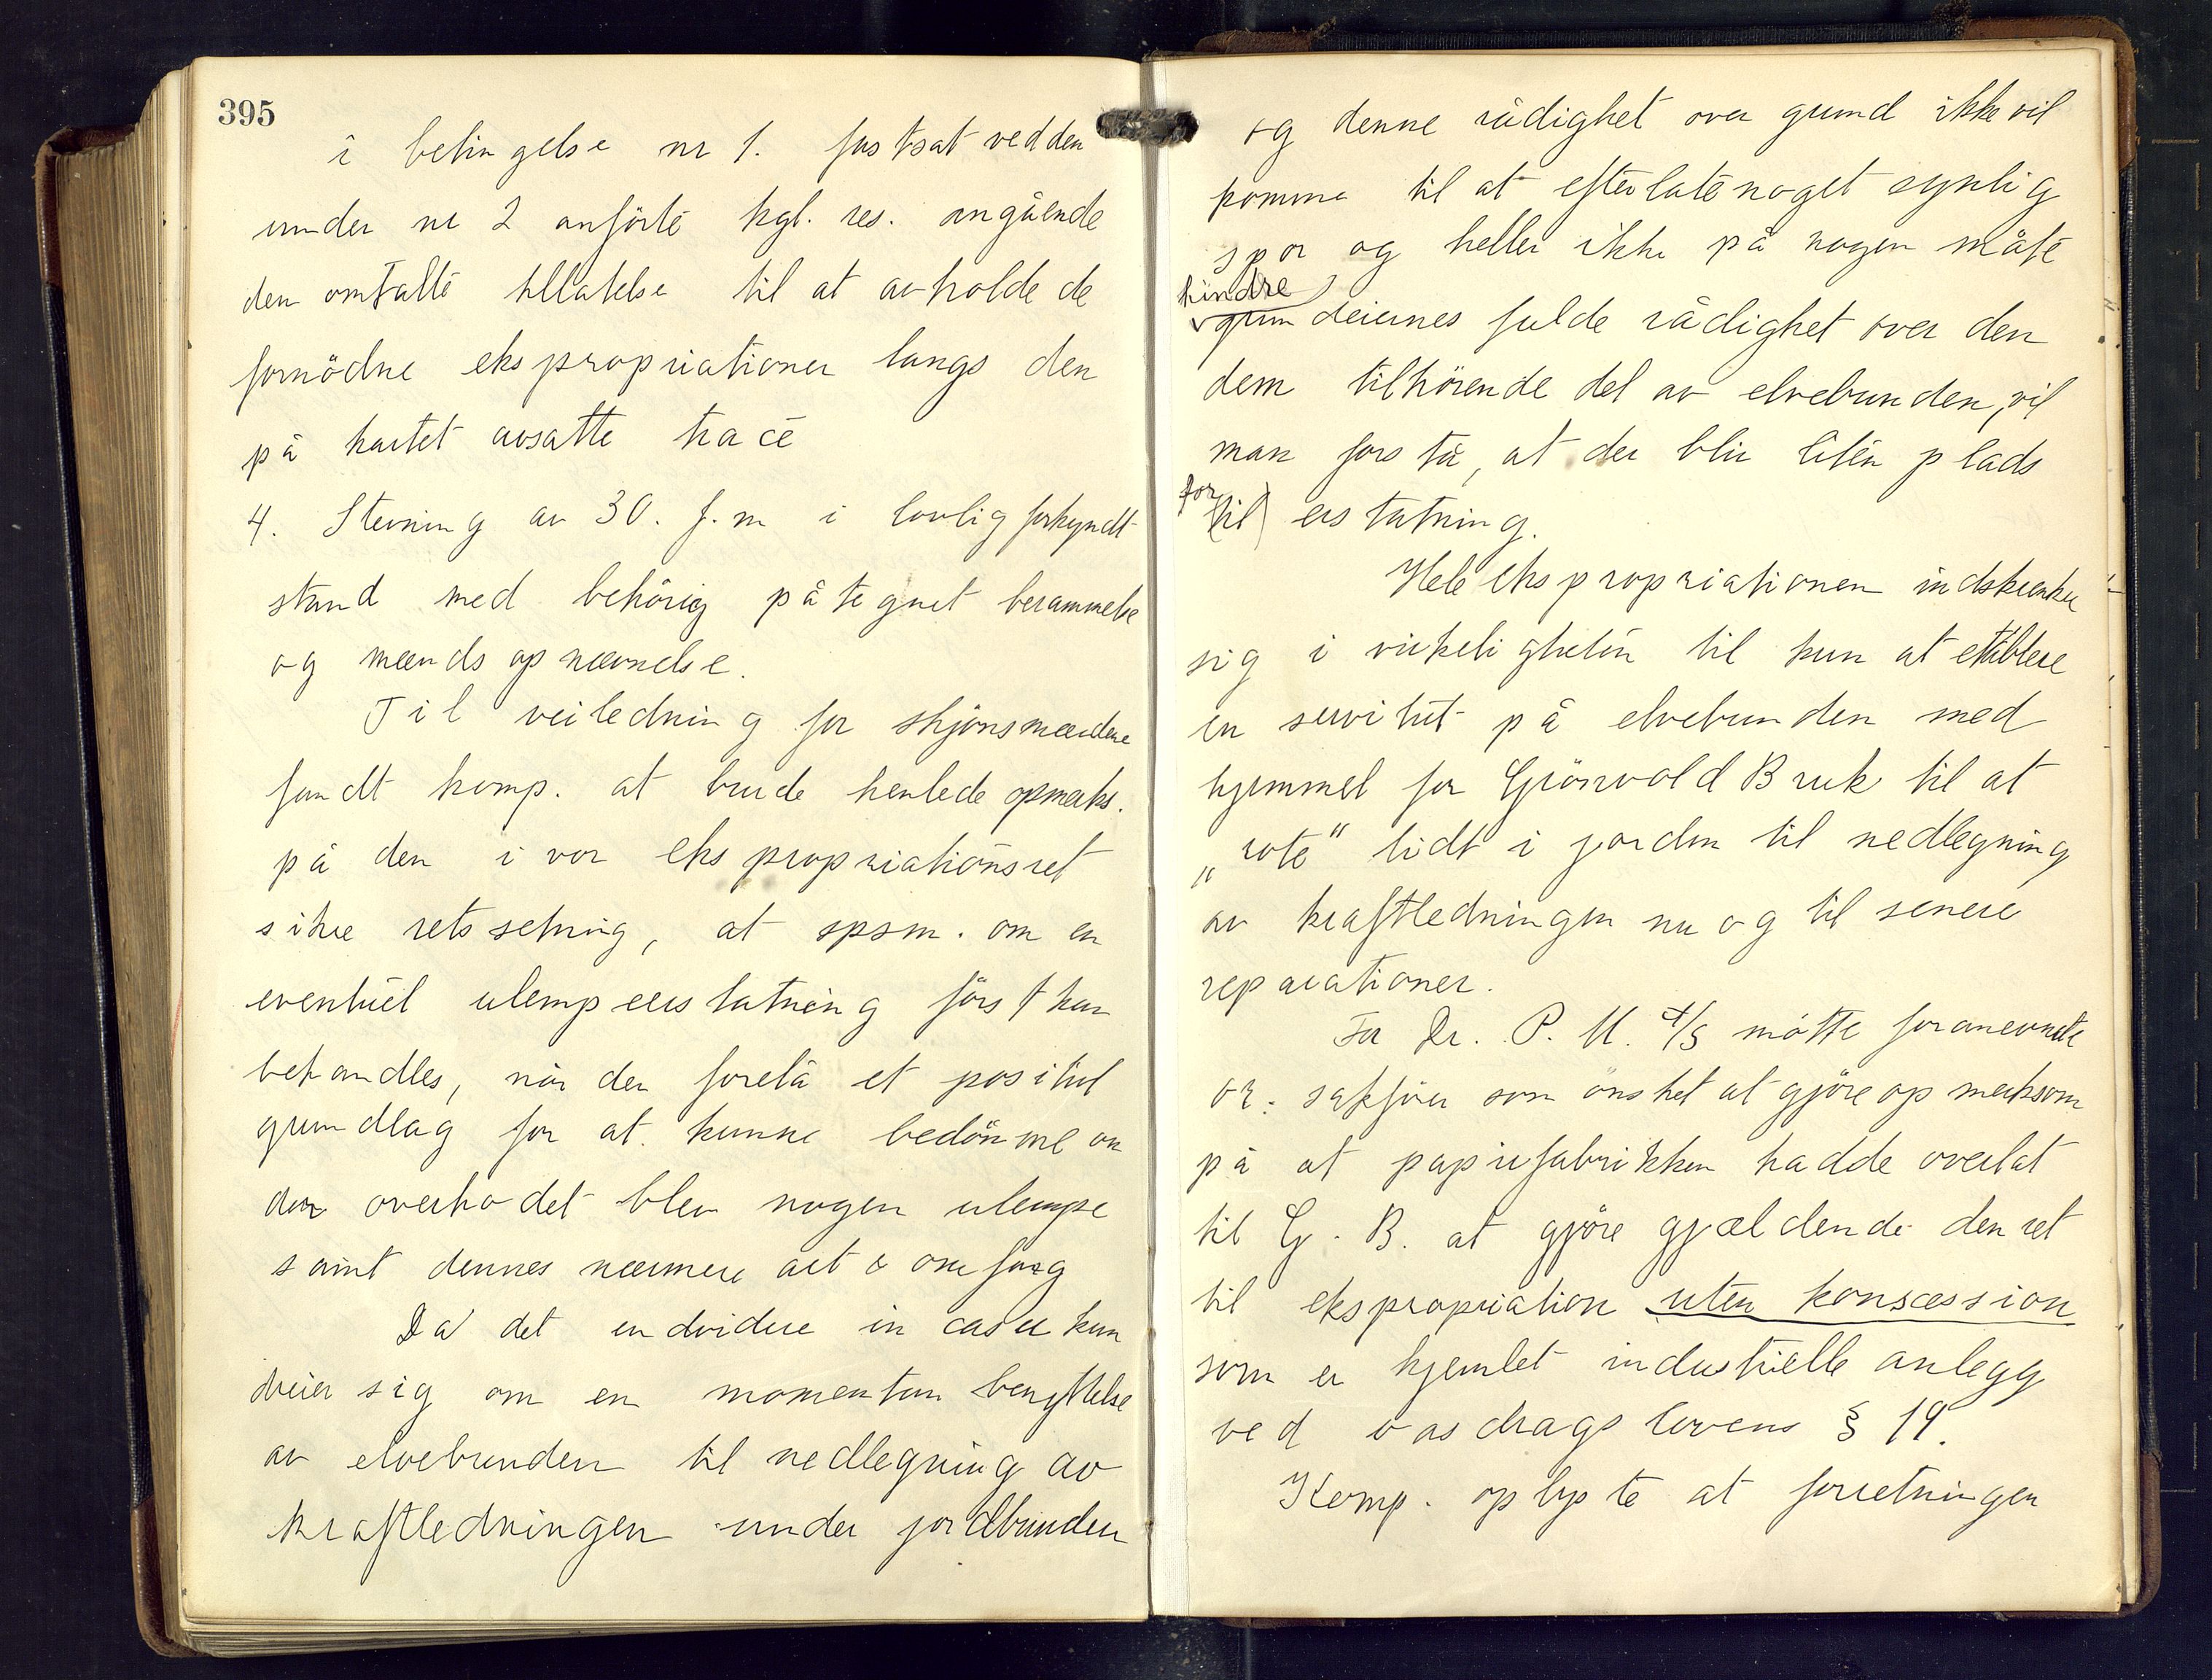 395
i betingelse nr 1. fastsat ved den
under nr 2 anförte kgl. res. angående
den omtalte tillatelse til at avholde de
fornödne ekspropriationer langs den
på kartet avsatte tracé
4. Stevning av 30. f.m i lovlig forkyndt
stand med behörig påtegnet berammelse
og mænds opnævnelse.
Til veiledning for skjönsmændene
fandt komp. at burde henlede opmerks.
på den i vor ekspropriationsret
sikre retssetning, at spsm. om en
eventuel ulempeerstatning först kan
behandles, når der forelå et positivt
grundlag for at kunne bedömme om
der overhodet blev nogen ulempe
samt dennes nærmere art & omfang
Da det endvidere in casu kun
dreier sig om en momentan benyttelse
av elvebunden til nedlegning av
kraftledningen under jordbunden
og denne rådighet over grund ikke vil
komme til at efterlate noget synlig
spor og heller ikke på nogen måte
hindre
grundeiernes fulde rådighet over den
dem tilhörende del av elvebunden, vil
man forstå, at der blir liten plads
for
(til) erstatning.
Hele ekspropriationen indskrænker
sig i virkeligheten til kun at etablere
en servitut på elvebunden med
hjemmel for Grönvold Bruk til at
„rote" lidt i jorden til nedlegning
av kraftledningen nu og til senere
reparationer.
For Dr. P. M. A/S mötte foranevnte
or: sakförer som önsket at gjöre opmerksom
på at papirfabrikken hadde overlat
til G. B. at gjöre gjældende den ret
til ekspropriation uten konsæssion
som er hjemlet industrielle anlegg
ved vasdragslovens § 19.
Komp. oplyste at forretningen